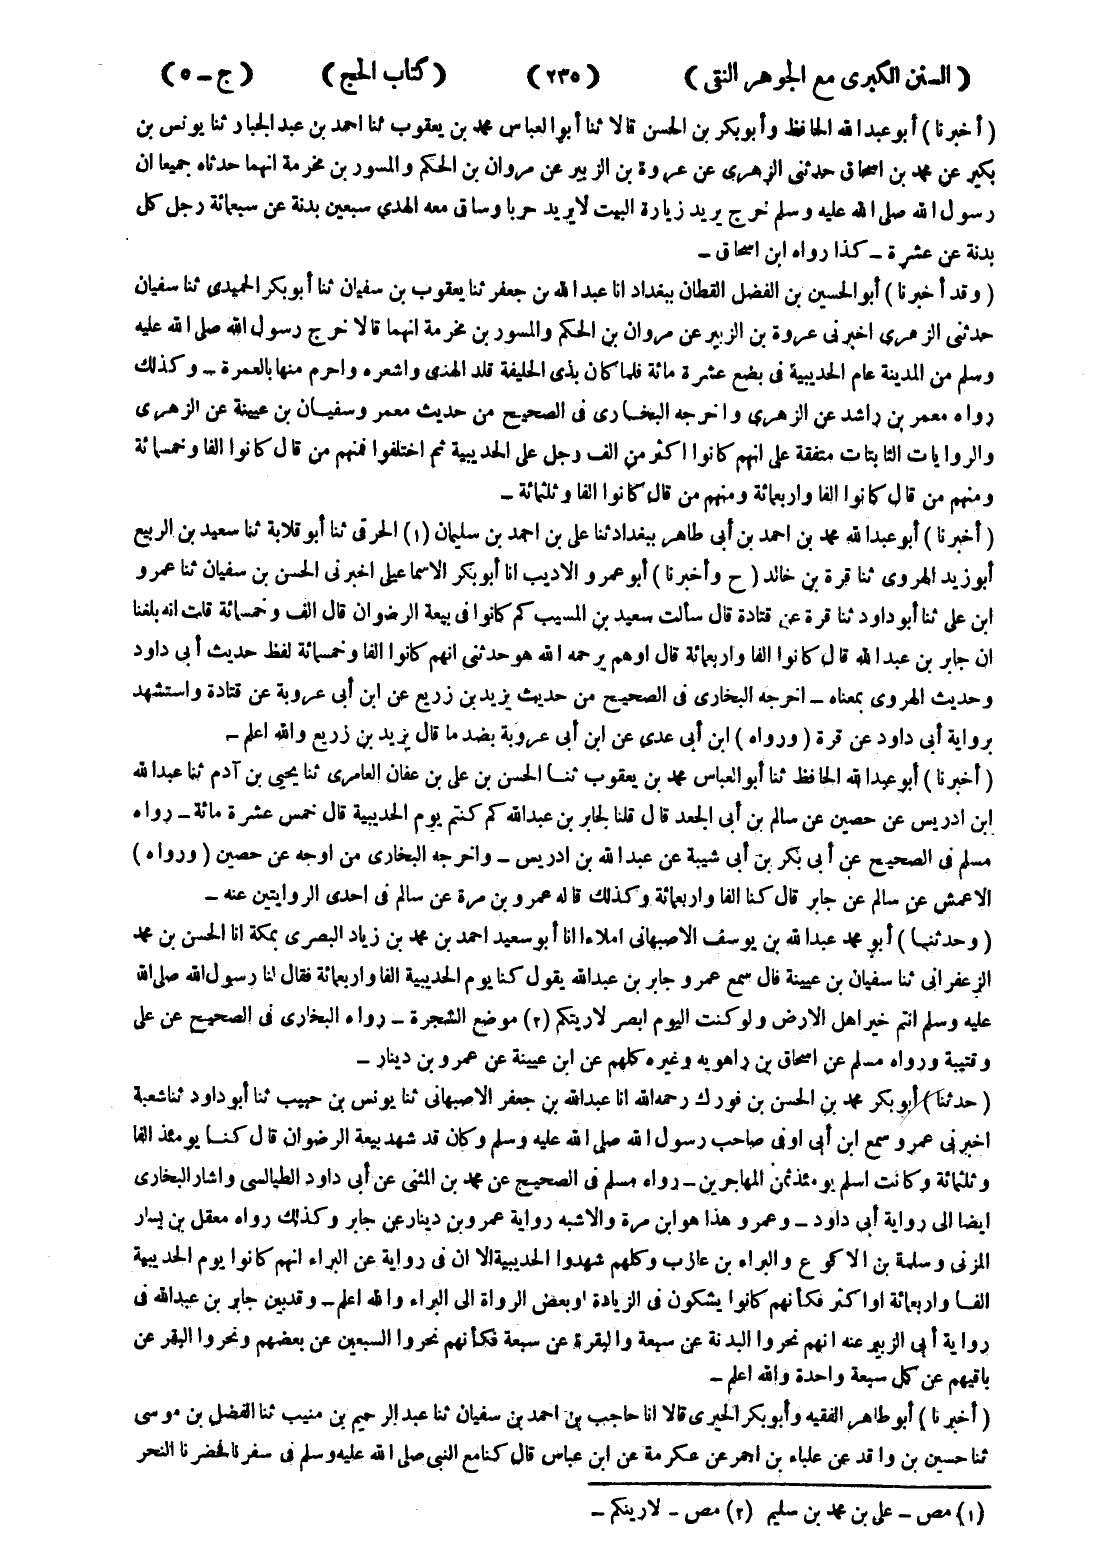 ( السنن الكبرى مع الجوهر النقى ) ( ٢٣٥ ) ( كتاب الحج ) ( ج – ٥ )
( أخبرنا ) أبو عبد الله الحافظ وأبو بكر بن الحسن قالا ثنا أبو العباس محمد بن يعقوب ثنا احمد بن عبد الجبار ثنا يونس بن
بكير عن محمد بن اسحاق حدثنى الزهرى عن عروة بن الزبير عن مروان بن الحكم والمسور بن مخرمة انهما حدثاه جميعا ان
رسول الله صلى الله عليه وسلم خرج يريد زيارة البيت لا يريد حربا وساق معه الهدي سبعين بدنة عن سبعمائة رجل كل
بدنة عن عشرة – كذا رواه ابن اسحاق –
( وقد أخبرنا ) أبو الحسين بن الفضل القطان ببغداد انا عبد الله بن جعفر ثنا يعقوب بن سفيان ثنا أبو بكر الحميدى ثنا سفيان
حدثنى الزهرى اخبرنى عروة بن الزبير عن مروان بن الحكم والمسور بن مخرمة انهما قالا خرج رسول الله صلى الله عليه
وسلم من المدينة عام الحديبية فى بضع عشرة مائة فلما كان بذى الحليفة قلد الهدى واشعره واحرم منها بالعمرة – وكذلك
رواه معمر بن راشد عن الزهرى واخرجه البخارى فى الصحيح من حديث معمر وسفيان بن عيينة عن الزهرى
والروايات الثابتات متفقة على انهم كانوا اكثر من الف رجل على الحديبية ثم اختلفوا فمنهم من قال كانوا الفا وخمسمائة
ومنهم من قال كانوا الفا واربعمائة ومنهم من قال كانوا الفا وثلثمائة –
( أخبرنا ) أبو عبد الله محمد بن احمد بن أبى طاهر ببغداد ثنا على بن احمد بن سليمان (١) الخرقى ثنا أبو قلابة ثنا سعيد بن الربيع
أبو زيد الهروى ثنا قرة بن خالد ( ح وأخبرنا ) أبو عمرو الاديب انا أبو بكر الاسماعيلى اخبرنى الحسن بن سفيان ثنا عمرو
ابن على ثنا أبو داود ثنا قرة عن قتادة قال سألت سعيد بن المسيب كم كانوا فى بيعة الرضوان قال الف وخمسمائة قلت انه بلغنا
ان جابر بن عبد الله قال كانوا الفا واربعمائة قال اوهم يرحمه الله هو حدثنى انهم كانوا الفا وخمسمائة لفظ حديث أبى داود
وحديث الهروى بمعناه – اخرجه البخارى فى الصحيح من حديث يزيد بن زريع عن ابن أبى عروبة عن قتادة واستشهد
برواية أبى داود عن قرة ( ورواه ) ابن أبى عدى عن ابن أبى عروبة بضد ما قال يزيد بن زريع والله اعلم –
( أخبرنا ) أبو عبد الله الحافظ ثنا أبو العباس محمد بن يعقوب ثنا الحسن بن على بن عفان العامرى ثنا يحيى بن آدم ثنا عبد الله
ابن ادريس عن حصين عن سالم بن أبى الجعد قال قلنا لجابر بن عبد الله كم كنتم يوم الحديبية قال خمس عشرة مائة – رواه
مسلم فى الصحيح عن أبى بكر بن أبى شيبة عن عبد الله بن ادريس – واخرجه البخارى من اوجه عن حصين ( ورواه )
الاعمش عن سالم عن جابر قال كنا الفا واربعمائة وكذلك قاله عمرو بن مرة عن سالم فى احدى الروايتين عنه –
( وحدثنا ) أبو محمد عبد الله بن يوسف الاصبهانى املاءا انا أبو سعيد احمد بن محمد بن زياد البصرى بمكة انا الحسن بن محمد
الزعفرانى ثنا سفيان بن عيينة قال سمع عمرو جابر بن عبد الله يقول كنا يوم الحديبية الفا واربعمائة فقال لنا رسول الله صلى الله
عليه وسلم انتم خير اهل الارض ولو كنت اليوم ابصر لاريتكم (٢) موضع الشجرة – رواه البخارى فى الصحيح عن على
وقتيبة ورواه مسلم عن اسحاق بن راهويه وغيره كلهم عن ابن عيينة عن عمرو بن دينار –
( حدثنا ) أبو بكر محمد بن الحسن بن فورك رحمه الله انا عبد الله بن جعفر الاصبهانى ثنا يونس بن حبيب ثنا أبو داود ثنا شعبة
اخبرنى عمرو سمع ابن أبى اوفى صاحب رسول الله صلى الله عليه وسلم وكان قد شهد بيعة الرضوان قال كنا يومئذ الفا
وثلثمائة وكانت اسلم يومئذ ثمن المهاجرين – رواه مسلم فى الصحيح عن محمد بن المثنى عن أبى داود الطيالسى واشار البخارى
ايضا الى رواية أبى داود – وعمرو هذا هو ابن مرة والاشبه رواية عمرو بن دينار عن جابر وكذلك رواه معقل بن يسار
المزنى وسلمة بن الاكوع والبراء بن عازب وكلهم شهدوا الحديبية الا ان فى رواية عن البراء انهم كانوا يوم الحديبية
الفا واربعمائة او اكثر فكأنهم كانوا يشكون فى الزيادة او بعض الرواة الى البراء والله اعلم – وقد بين جابر بن عبد الله فى
رواية أبى الزبير عنه انهم نحروا البدنة عن سبعة والبقرة عن سبعة فكأنهم نحروا السبعين عن بعضهم ونحروا البقر عن
باقيهم عن كل سبعة واحدة والله اعلم –
( أخبرنا ) أبو طاهر الفقيه وأبو بكر الحيرى قالا انا حاجب بن احمد بن سفيان ثنا عبد الرحيم بن منيب ثنا الفضل بن موسى
ثنا حسين بن واقد عن علباء بن احمر عن عكرمة عن ابن عباس قال كنا مع النبى صلى الله عليه وسلم فى سفر نا فحضرنا النحر
(١) مص – على بن محمد بن سليم (٢) مص – لارينكم –